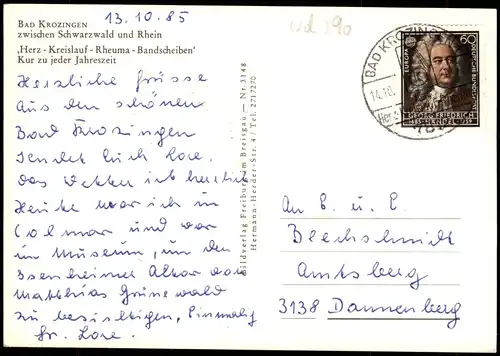 13.10.85
BAD KROZINGEN
zwischen Schwarzwald und Rhein
‚Herz - Kreislauf - Rheuma - Bandscheiben'
Kur zu jeder Jahreszeit
Herzliche Grüsse
aus dem schönen
Bad Krozingen
sendet Euch Lore.
das Wetter ist herrlich
Heute war ich in
Colmar und war
im Museum, um den
Issenheimer Altar von
Matthias Grünewald
zu besichtigen, Einmalig
Gr. Lore.
Bildverlag Freiburg im Breisgau – Nr. 3148
Hermann-Herder-Str. 4 / Tel. 2717270
BAD KROZINGEN
14.10.
EUROPA
60
DEUTSCHE BUNDESPOST
GEORG FRIEDRICH
HÄNDEL
An E. u. E.
Blechschmidt
Amtsberg
3138 Dannenberg